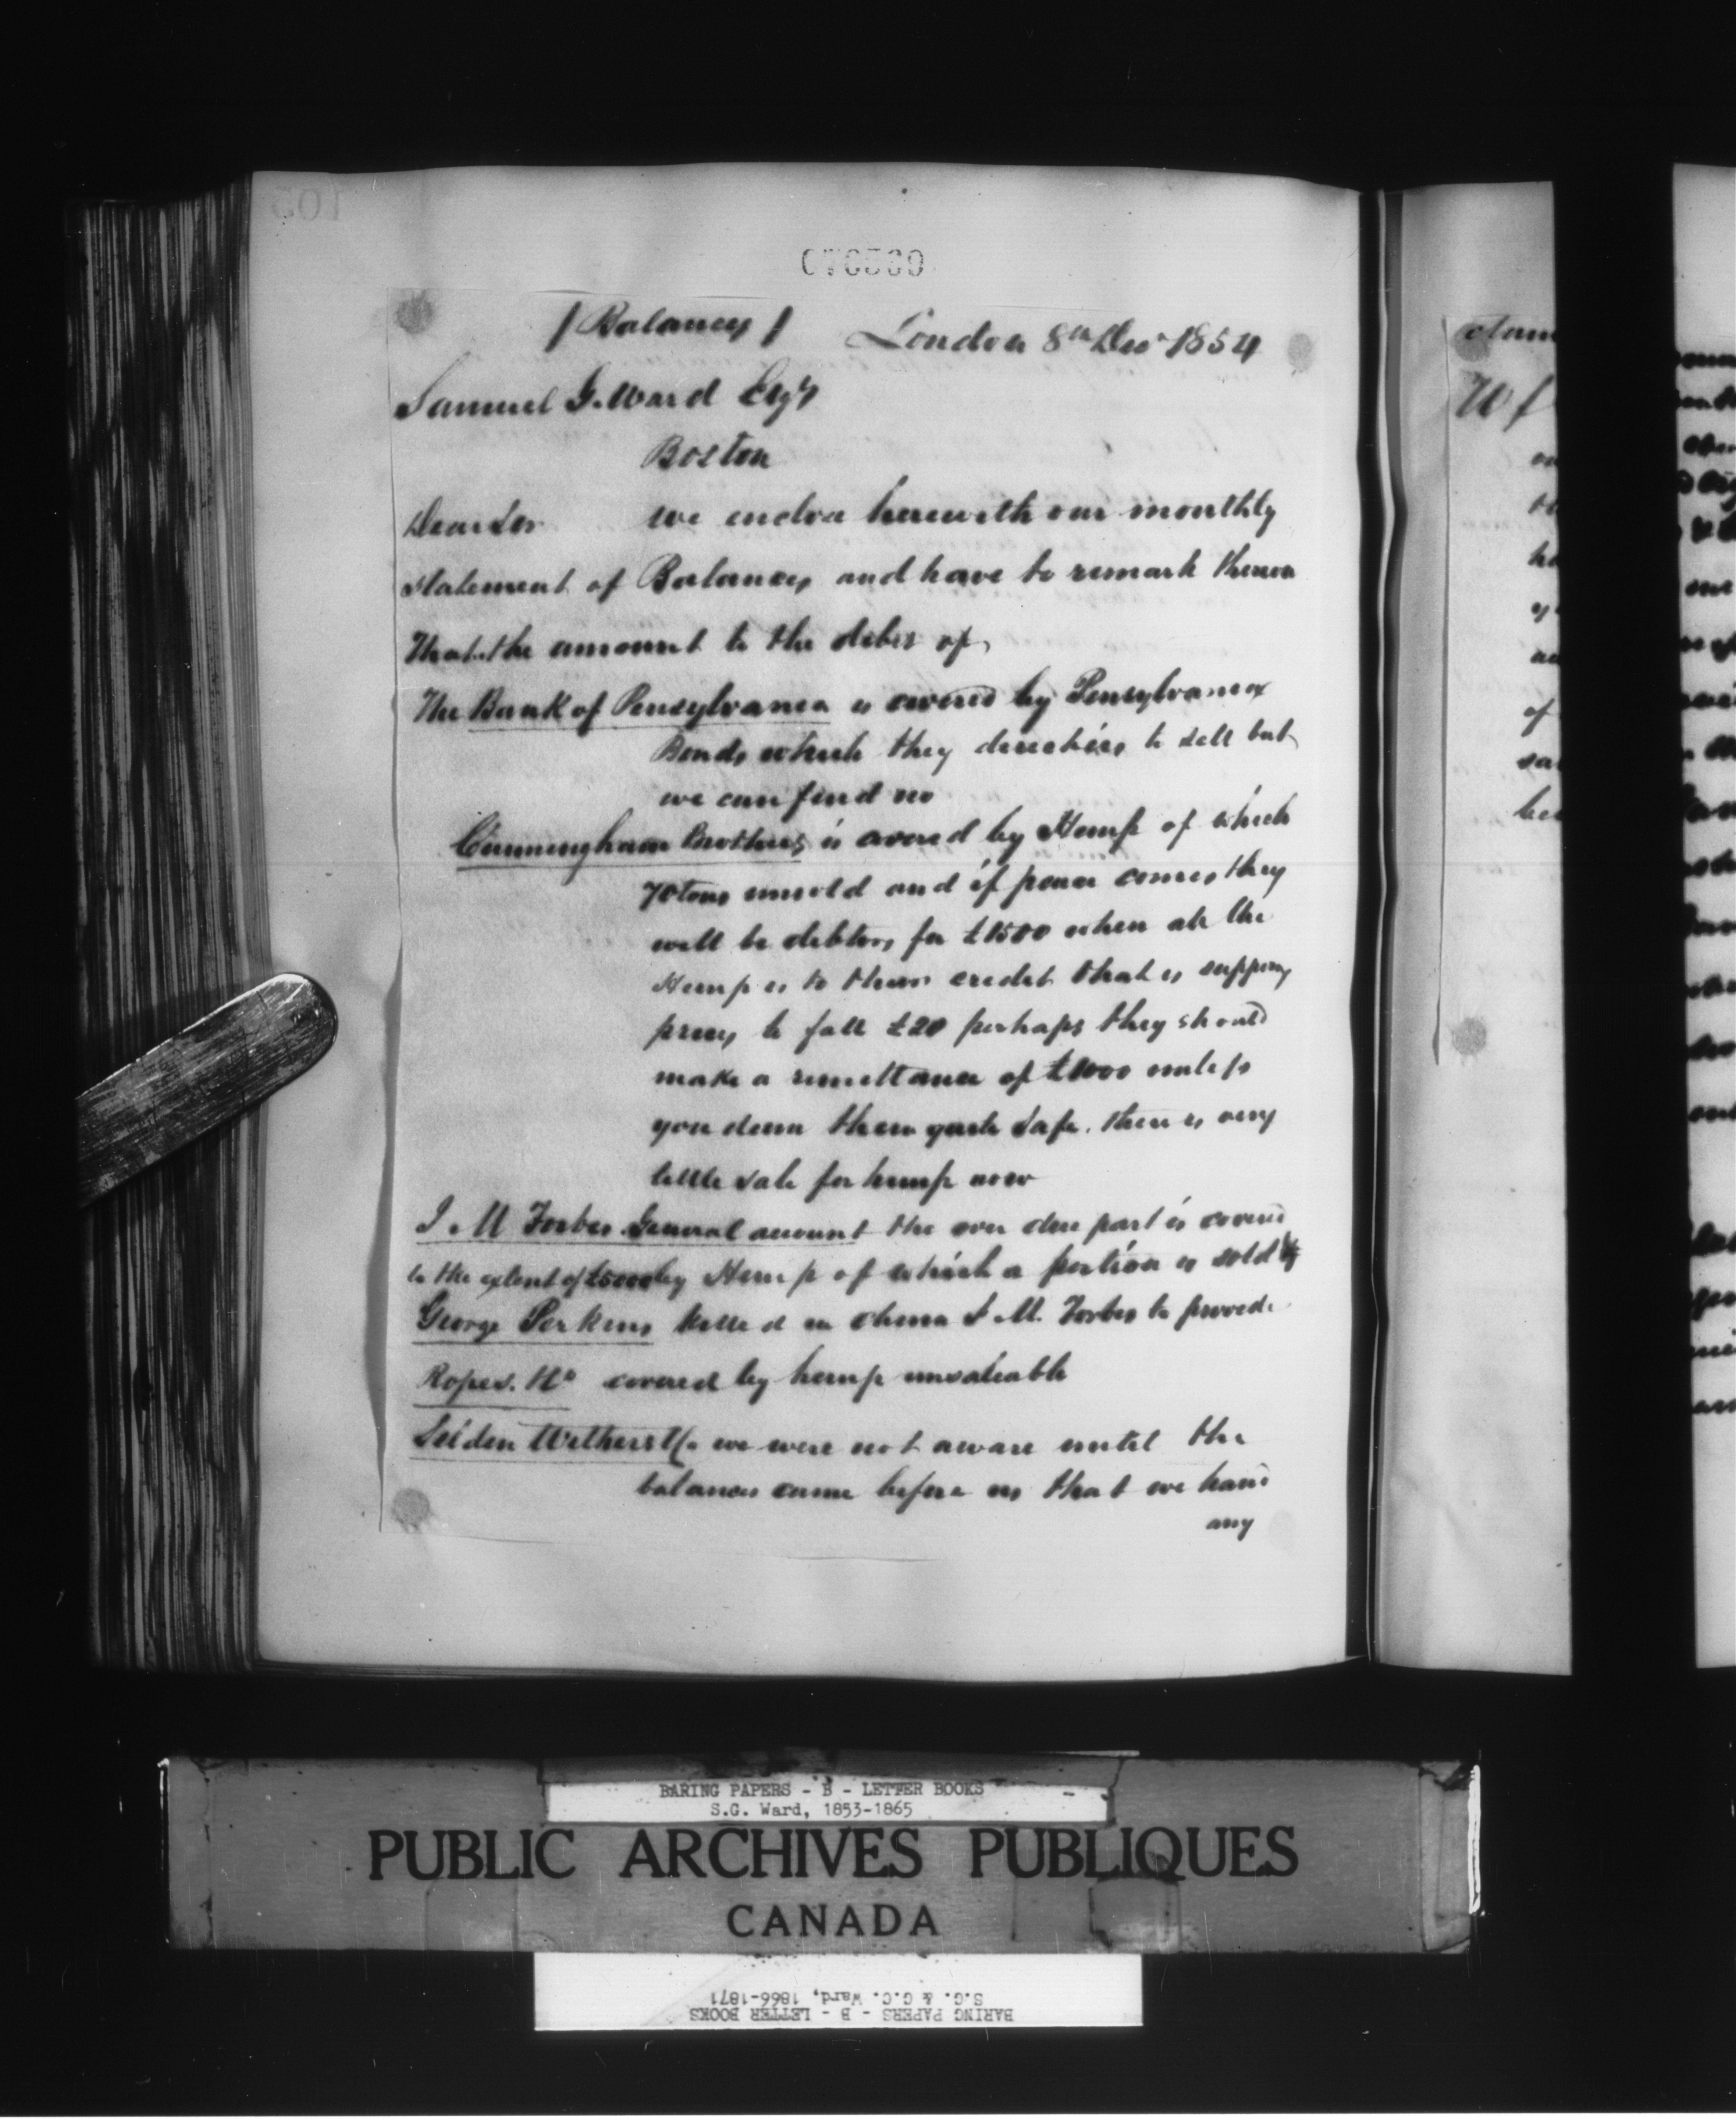 070569
/ Balances / London 8th Decr 1854
Samuel G. Ward Esqr
Boston
Dear Sir We enclose herewith our monthly
statement of Balances and have to remark thereon
that the amount to the debit of
The Bank of Pensylvania is covered by Pensylvania
Bonds which they direct us to sell but
we can find no
Cunningham Brothers is covered by Hemp of which
70 tons unsold and if peace comes they
will be debtors for £1500 when all the
Hemp is to their credit that is supposing
prices to fall £20 perhaps they should
make a remittance of £1000 unless
you deem them quite safe. there is very
little sale for hemp now
J. M Forbes General account the over due part is covered
to the extent of £5000 by Hemp of which a portion is sold
George Perkins killed in China J. M. Forbes to provide
Ropes. covered by hemp unsaleable
Selden Withers & Co we were not aware until the
balances came before us that we have
any
BARING PAPERS - B - LETTER BOOKS
S.G. Ward, 1853-1865
PUBLIC ARCHIVES PUBLIQUES
CANADA
BARING PAPERS - B - LETTER BOOKS
S.G. & G.C. Ward, 1866-1871